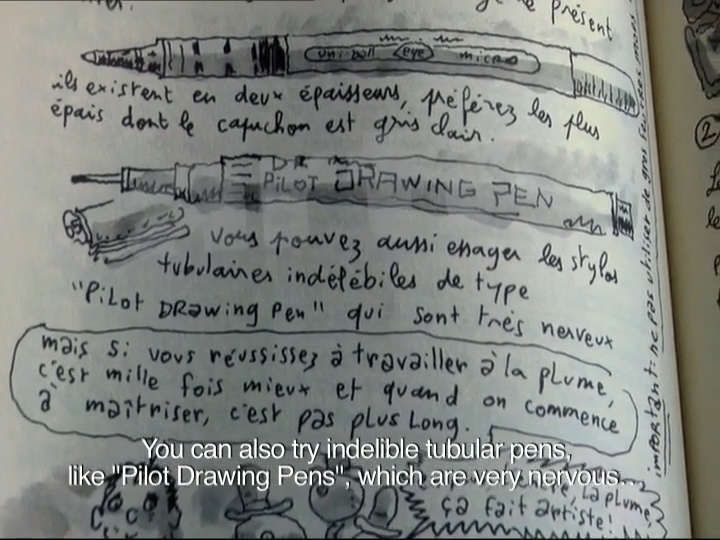 présent
uni-ball eye micro
ils existent en deux épaisseurs, préférez les plus
épais dont le capuchon est gris clair.
PILOT DRAWING PEN
vous pouvez aussi essayer les stylos
tubulaires indélébiles de type
"PiLot DRawing Pen" qui sont très nerveux
mais si vous réussissez à travailler à la plume,
c'est mille fois mieux et quand on commence
à maîtriser, c'est pas plus long.
la plume,
ça fait artiste!
important: ne pas utiliser de gros
2
You can also try indelible tubular pens,
like "Pilot Drawing Pens", which are very nervous...